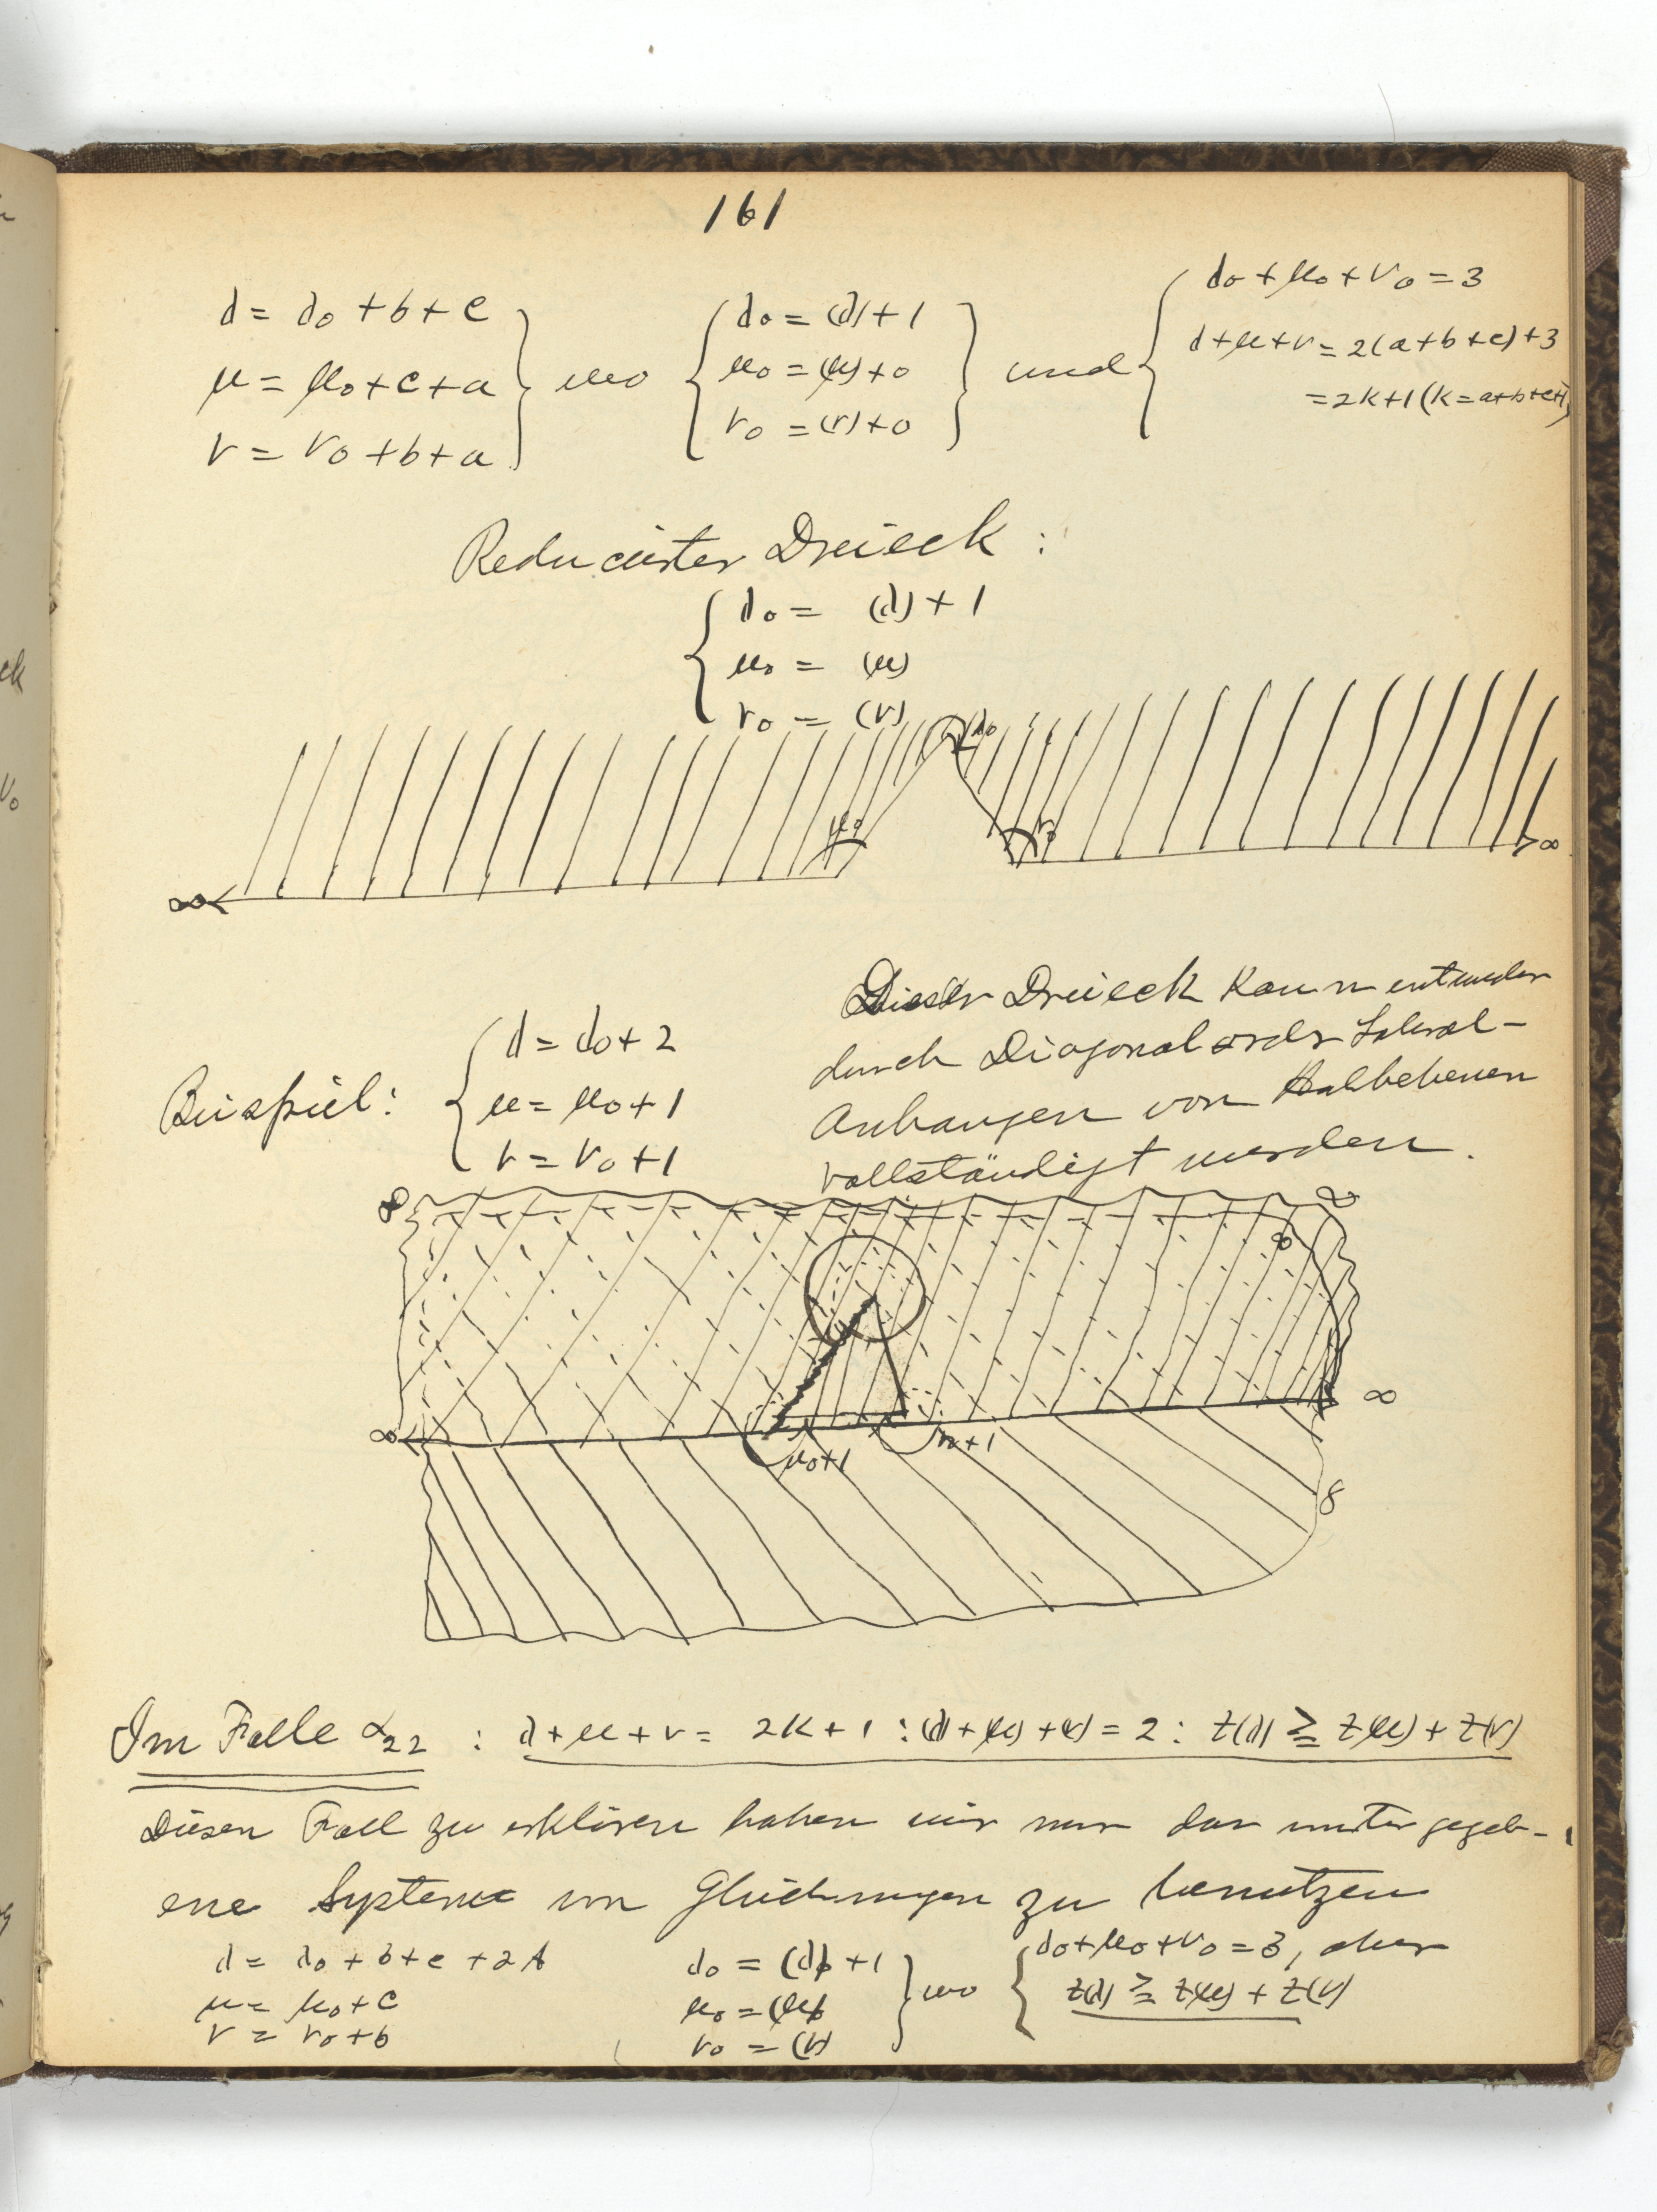 161
λ = λ₀ + b + c
μ = μ₀ + c + a
ν = ν₀ + b + a
wo
λ₀ = (λ) + 1
μ₀ = (μ) + 0
ν₀ = (ν) + 0
und
λ₀ + μ₀ + ν₀ = 3
λ + μ + ν = 2(a + b + c) + 3
= 2k + 1 (k = a + b + c + 1)
Reducirter Dreieck :
λ₀ = (λ) + 1
μ₀ = (μ)
ν₀ = (ν)
λ₀
μ₀
ν₀
∞
∞
Dieser Dreieck kann entweder
durch Diagonal oder Lateral-
Anhangen von Halbebenen
vollständigt werden.
Beispiel:
λ = λ₀ + 2
μ = μ₀ + 1
ν = ν₀ + 1
∞
∞
∞
∞
∞
μ₀+1
ν₀+1
∞
Im Falle α₂₂ : λ + μ + ν = 2k + 1 : (λ) + (μ) + (ν) = 2 : z(λ) ≧ z(μ) + z(ν)
Diesen Fall zu erklären haben wir nur das unter gegeb-
ene Systeme von Gleichungen zu benutzen
λ = λ₀ + b + c + 2A
μ = μ₀ + c
ν = ν₀ + b
λ₀ = (λ) + 1
μ₀ = (μ)
ν₀ = (ν)
wo
λ₀ + μ₀ + ν₀ = 3, aber
z(λ) ≧ z(μ) + z(ν)